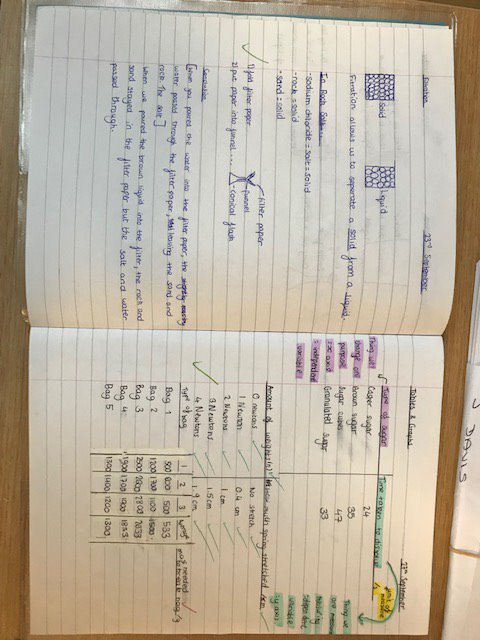 Filtration 23rd September
solid liquid
Filtration allows us to seperate a solid from a liquid.
In Rock Salt...
· sodium chloride = salt = solid
· rock = solid
· sand = solid
1) fold filter paper
2) put paper into funnel....
filter paper
funnel
conical flask
Conclusion
[When you poured the water into the filter paper, the
water passed through the filter paper, leaving the sand and
rock. The salt]
When we poured the brown liquid into the filter, the rock and
sand stayed in the filter paper but the salt and water
passed through.
Tables & Graphs 27th September
Thing we
change on
purpose
: x axis
= independent
variable!
Type of sugar
Time taken to dissolve
unit of
measure
Caster sugar 24
Brown sugar 35
Sugar cubes 47
Granulated sugar 33
Thing we
are measuring
: y axis!
Amount of weights (n) How much spring stretched /cm
0 newtons No stretch
1 Newton 0.4 cm
2 Newtons 1 cm
3 Newtons 1.5 cm
4 Newtons 1.9 cm
Type of bag 1 2 3
Bag 1 500 600 500 533
Bag 2 1200 1700 1600 1500
Bag 3 2500 2800 2800
Bag 4 1900 1700 1900 1833
Bag 5 1300 1400 1200 1300
DAVIS